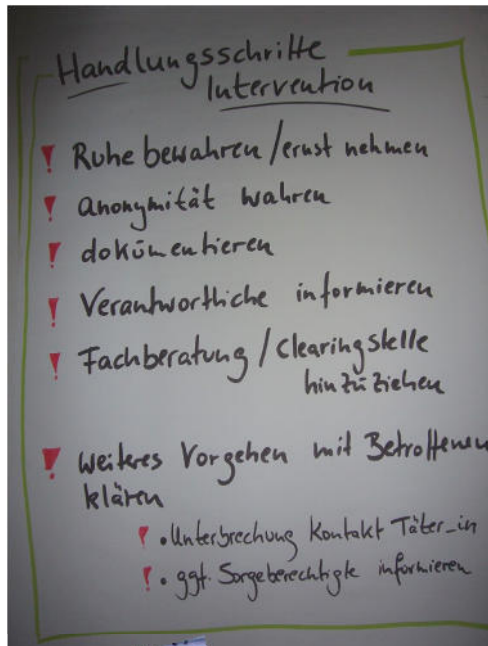 Handlungsschritte
Intervention
! Ruhe bewahren / ernst nehmen
! anonymität wahren
! dokumentieren
! Verantwortliche informieren
! Fachberatung / Clearingstelle
hinzuziehen
! weiteres Vorgehen mit Betroffenen
klären
! • Unterbrechung Kontakt Täter_in
! • ggf. Sorgeberechtigte informieren